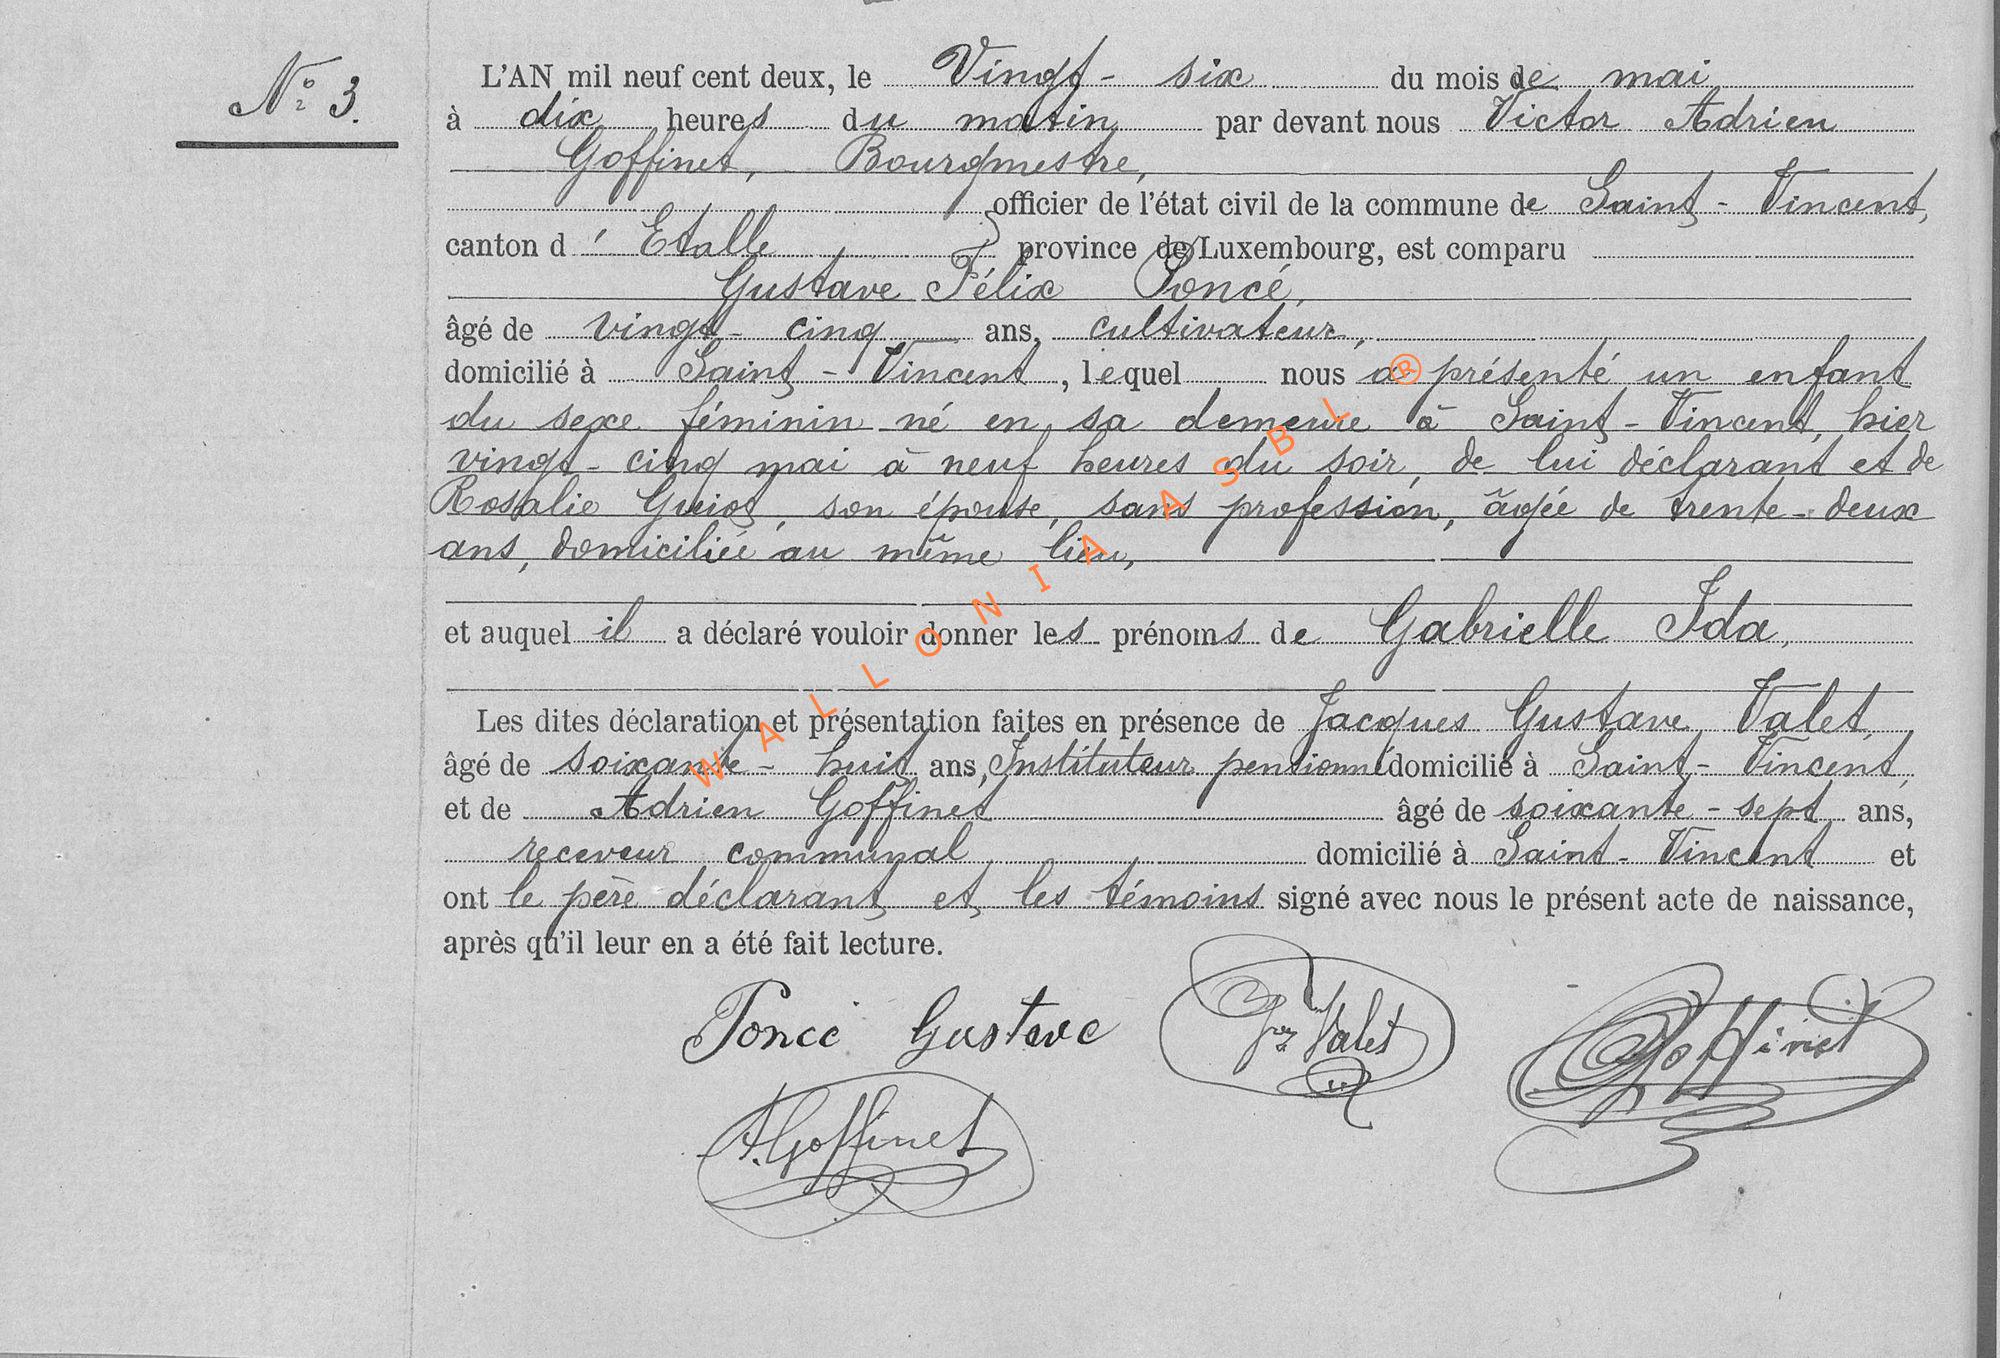 N° 3.
L'AN mil neuf cent deux, le Vingt-six du mois de mai
à dix heures du matin par devant nous Victor Adrien
Goffinet, Bourgmestre,
officier de l'état civil de la commune de Saint-Vincent,
canton d'Etalle province de Luxembourg, est comparu
Gustave Félix Poncé,
âgé de vingt-cinq ans, cultivateur,
domicilié à Saint-Vincent, lequel nous a présenté un enfant
du sexe féminin né en sa demeure à Saint-Vincent, hier
vingt-cinq mai à neuf heures du soir, de lui déclarant et de
Rosalie Guiot, son épouse, sans profession, âgée de trente-deux
ans, domiciliée au même lieu,
et auquel il a déclaré vouloir donner les prénoms de Gabrielle Ida,
Les dites déclaration et présentation faites en présence de Jacques Gustave Valet,
âgé de soixante-huit ans, Instituteur pensionné domicilié à Saint-Vincent,
et de Adrien Goffinet âgé de soixante-sept ans,
receveur communal domicilié à Saint-Vincent et
ont le père déclarant et les témoins signé avec nous le présent acte de naissance,
après qu'il leur en a été fait lecture.
Poncé Gustave Valet Goffinet
A. Goffinet
WALLONIA ASBL ®